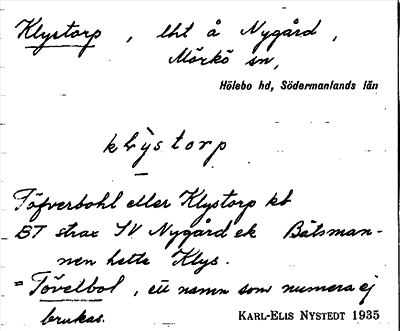 Klystorp, lht å Nygård,
Mörkö sn,
Hölebo hd, Södermanlands län
klystorp
Töfverbohl eller Klystorp kt
BT strax SV Nygård ek Båtsman-
nen hette Klys.
= Tövelbol, ett namn som numera ej
brukas.
KARL-ELIS NYSTEDT 1935